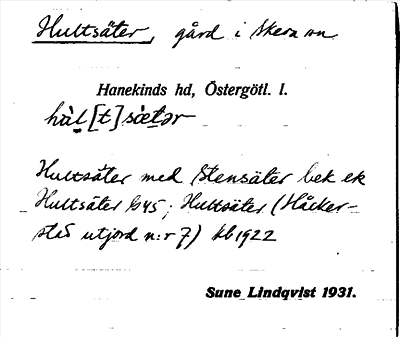 Hultsäter, gård i Skeda sn
Hanekinds hd, Östergötl. l.
hàl[t]sætər
Hultsäter med Stensäter bek ek
Hultsäter G45; Hultsäter (Håcker-
stad utjord n:r 7) kb 1922
Sune Lindqvist 1931.